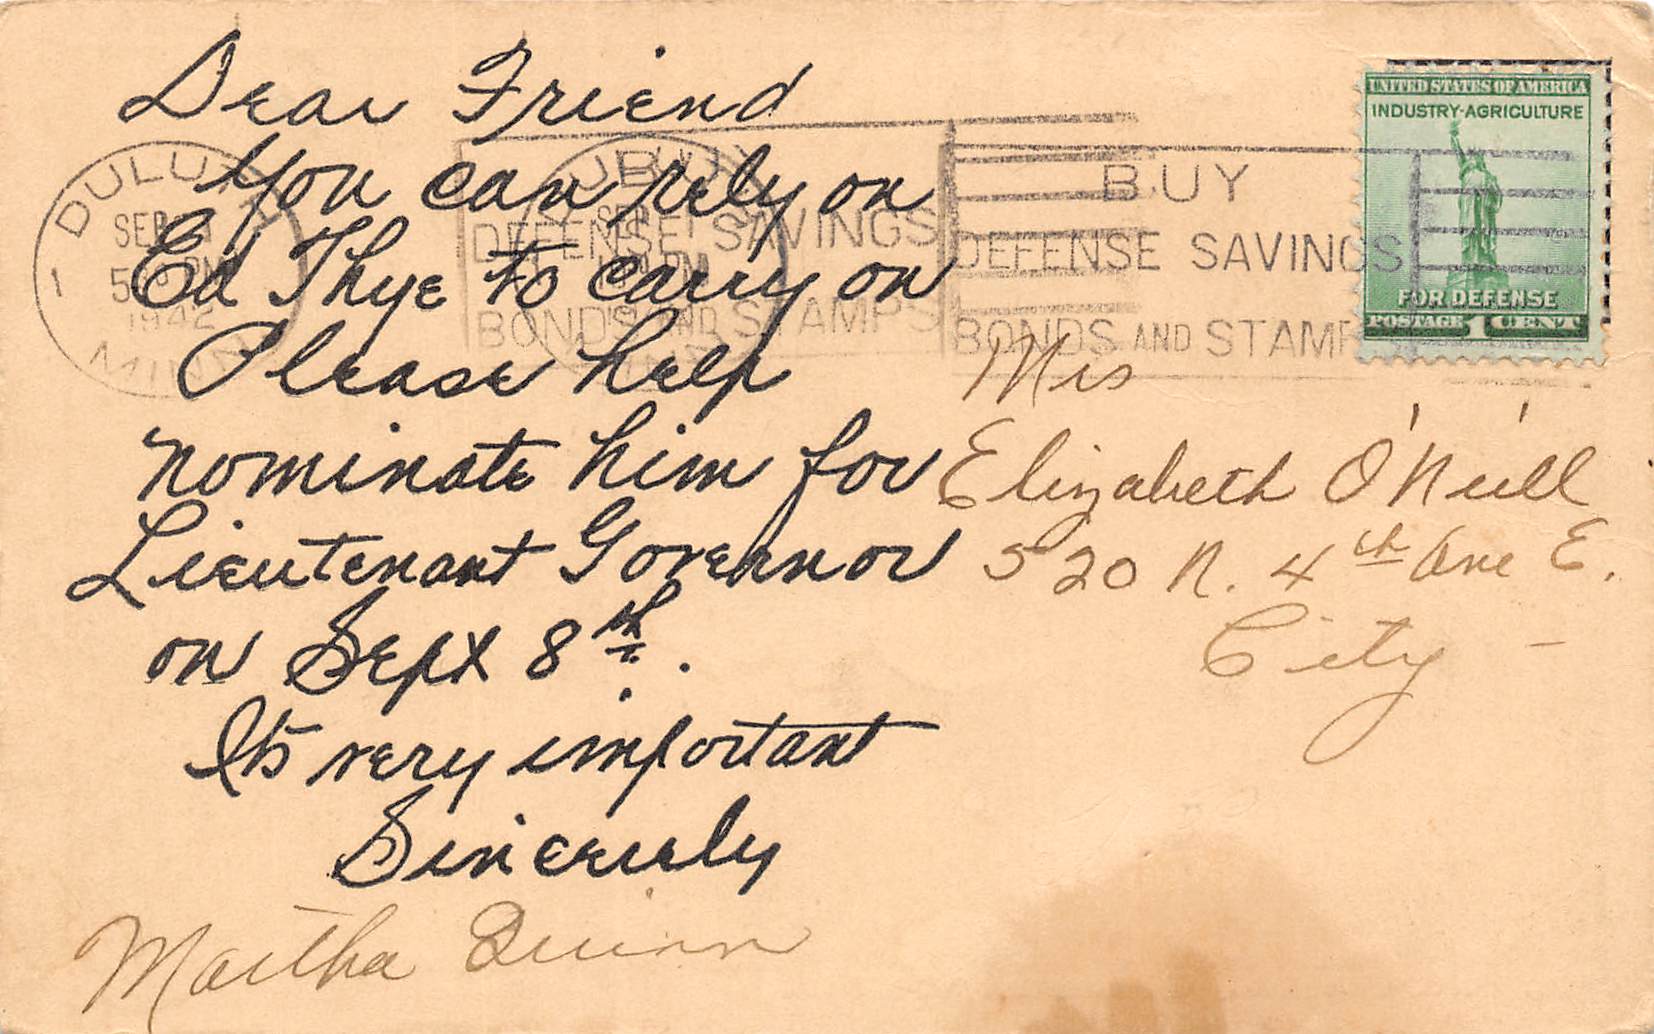 Dear Friend
You can rely on
Ed Thye to carry on
Please help
nominate him for
Lieutenant Governor
on Sept 8th.
It's very important
Sincerely
Martha Quinn
DULUTH
SEP
5 PM
1942
MINN
1
BUY
DEFENSE SAVINGS
BONDS AND STAMPS
BUY
DEFENSE SAVINGS
BONDS AND STAMPS
UNITED STATES OF AMERICA
INDUSTRY-AGRICULTURE
FOR DEFENSE
POSTAGE 1 CENT
Mrs
Elizabeth O'Neill
520 N. 4th Ave E.
City